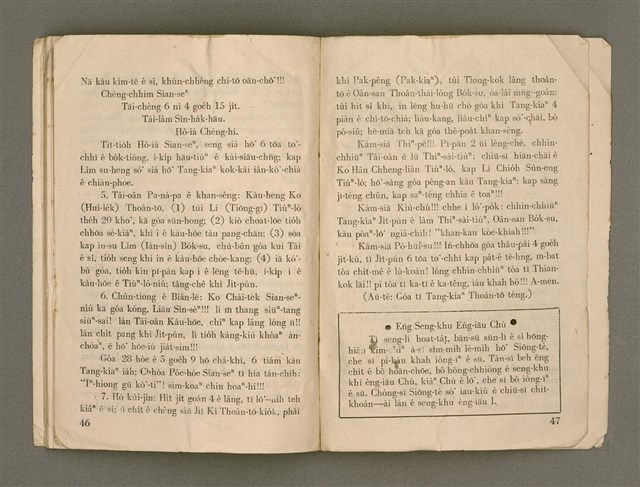 Nā kàu kim-tē ê sî, khún-chhêng chí-tō oān-chō͘!!!
Chèng-chhim Sian-seⁿ
Tāi-chèng 6 nî 4 goe̍h 15 jit.
Tâi-lâm Sîn-ha̍k-hāu.
Hô-iá Chèng-hí.
Tit-tio̍h Hô-iá Sian-seⁿ, seng siá hō͘ 6 tōa to͘-
chhī ê bo̍k-tiông, i-ki̍p hāu-tiúⁿ ê kài-siāu-chn̄g; kap
Lîm su-heng só͘ siá hō͘ Tang-kiaⁿ kok-kài iân-kó͘-chiá
ê chiàu-phoe.
5. Tâi-oân Pa-ná-pa ê khan-sêng: Kàu-heng Ko
(Hui-le̍k) Thoân-tō, (1) tùi Lí (Tiông-gī) Tiúⁿ-ló
the̍h 20 kho͘, kā góa sūn-hong; (2) kiò choat-lōe tio̍h
chhōa sè-kiáⁿ, khì i ê kàu-hōe tàu pang-chān; (3) sòa
kap in-su Lîm (Iàn-sîn) Bo̍k-su, chú-bûn góa kui Tâi
ê sî, tio̍h seng khì in ê kàu-hōe chòe-kang; (4) iā kó͘-
bú góa, tio̍h kín pī-pān kap i ê lēng-tē-hū, i-ki̍p i ê
kàu-hōe ê Tiúⁿ-ló-niû; tâng-chê khì Ji̍t-pún.
6. Chûn-tiong ê Biān-lē: Ko Chài-tek Sian-seⁿ-
niû kā góa kóng, Liāu Sin-sèⁿ!!! lí m̄ thang siūⁿ-tang
siūⁿ-sai! lán Tâi-oân Kàu-hōe, chíⁿ kap lâng lóng ū!!
lán chit pang khì Ji̍t-pún, lí tio̍h káng-kiù khòaⁿ án-
chóaⁿ, ê hō͘ hôe-iú jia̍t-sim!!!
Góa 28 hòe ê 5 goe̍h 9 hō chá-khí, 6 tiám kàu
Tang-kiaⁿ ia̍h; Chhōa Pôe-hóe Sian-seⁿ tī hia tán-chih:
“Iⁿ-hiong gū kò͘-ti”! sím-koaⁿ chin hoaⁿ-hí!!!
7. Hó kūi-jîn: Hit jit goán 4 ê lâng, tī lō͘-ni̍h teh
kiâⁿ ê sî; ū chi̍t ê chêng siú Ji̍t Ki Thoân-tō-kio̍k, phái
46
khì Pak-pêng (Pak-kiaⁿ), tùi Tiong-kok lâng thoân-
tō ê Oân-san Thoân-thài-lông Bo̍k-su, óa-lâi mn̄g-goán:
tùi hit sî khí, in lēng hu-hū chō góa khì Tang-kiaⁿ 4
piàn ê chí-tō-chiá; liáu-kang, liáu-chîⁿ kap só͘-chāi, bô
pó-siù; hē-miā teh kā góa thè-poa̍t khan-sêng.
Kám-siā Thîⁿ-pē!!! Pī-pān 2 ūi lêng-chê, chhin-
chhiūⁿ Tâi-oân ê lú Thiⁿ-sài-tiúⁿ: chiū-sī hiān-chāi ê
Ko Hāu Chheng-liân Tiúⁿ-ló, kap Lí Chiōh Sûn-eng
Tiúⁿ-ló; hō͘-sàng góa pêng-an kàu Tang-kiaⁿ; kap sàng
jī-tēng chûn, kap saⁿ-tēng chhia ê toaⁿ!!!
Kám-siā Kiù-chú!!! chhe i lô͘-po̍k: chhin-chhiūⁿ
Tang-kiaⁿ Ji̍t-pún ê lâm Thiⁿ-sài-tiúⁿ, Oân-san Bo̍k-su,
kàu pòaⁿ-lō͘ ngiâ-chih! “khan-kàu kòe-khiah!!!”
Kám-siā Pó-hūi-su!!! In-chhōa góa thâu-pái 4 goe̍h
ji̍t-kú, tī Ji̍t-pún 6 tōa to͘-chhī kap pa̍t-ê tē-hng, m̄-bat
tòa chi̍t-mê ê lú-koán! lóng chhin-chhiūⁿ tòa tī Thian-
kok lāi!! pí tòa tī ka-tī ê ka-têng, iáu khah hó!!! A-men.
(Aū-tê: Góa tī Tang-kiaⁿ Thoân-tō têng.)
Eńg Seng-khu Eńg-iāu Chú
Tī seng-lí hoat-ta̍t, bān-sū sūn-lī ê sî hōng,
chit ê bô hoân-chòe, bô hōng-chhiōng ê seng-khu
khì êng-iāu Chú, kiáⁿ Chú ê lō͘, che sī bô iông-īⁿ
ê sū. Chóng-sī Siōng-tè só͘ iau-kiû ê chiū-sī chit-
khoán—ài lán ê seng-khu êng-iāu I.
47